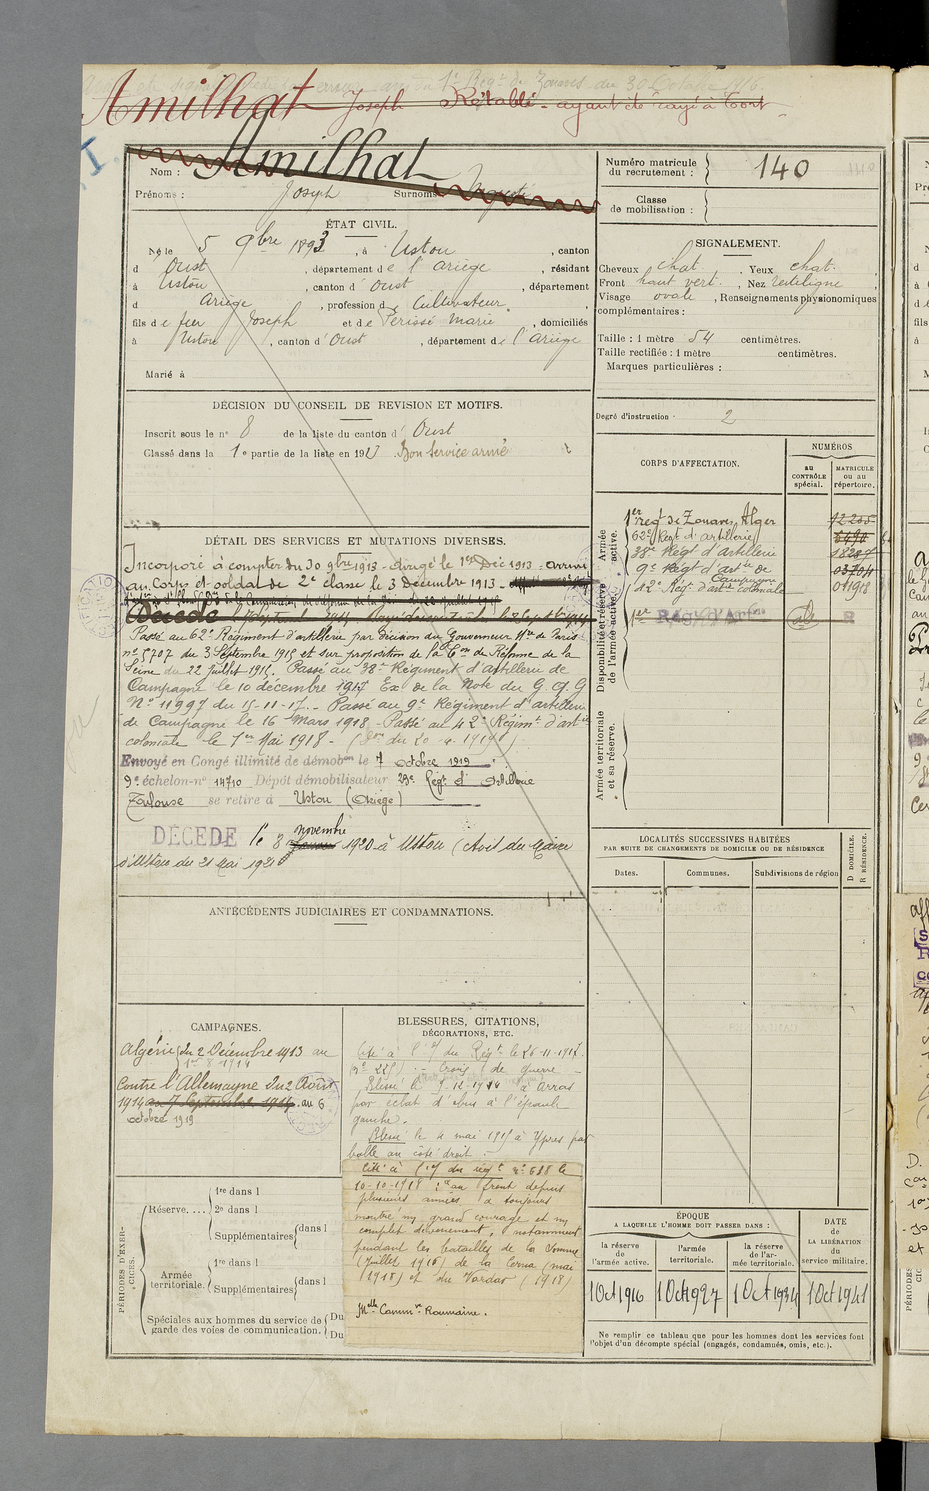 Amilhat Joseph Rétabli - ayant été rayé à tort
Nom : Amilhat
Prénoms : Joseph Surnoms :
Numéro matricule du recrutement : 140
Classe de mobilisation :
ÉTAT CIVIL.
Né le 5 9bre 1893, à Ustou, canton
d Oust, département de l'Ariège, résidant
à Ustou, canton d'Oust, département
d Ariège, profession de Cultivateur
fils de feu Joseph et de Périssé Marie, domiciliés
à Ustou, canton d'Oust, département de l'Ariège
Marié à
SIGNALEMENT.
Cheveux chat. Yeux chat.
Front haut vert. Nez rectiligne
Visage ovale, Renseignements physionomiques
complémentaires :
Taille : 1 mètre 54 centimètres.
Taille rectifiée : 1 mètre centimètres.
Marques particulières :
Degré d'instruction : 2
DÉCISION DU CONSEIL DE REVISION ET MOTIFS.
Inscrit sous le n° 8 de la liste du canton d'Oust
Classé dans la 1e partie de la liste en 1913 Bon service armé
DÉTAIL DES SERVICES ET MUTATIONS DIVERSES.
Incorporé à compter du 30 9bre 1913 - dirigé le 1er Déc 1913 - arrivé
au Corps et soldat de 2e classe le 3 Décembre 1913 -
Décédé
Passé au 62e Régiment d'artillerie par décision du Gouverneur Mre de Paris
n° 5707 du 3 Septembre 1915 et sur proposition de la Con de Réforme de la
Seine du 22 juillet 1915. Passé au 38e Régiment d'artillerie de
Campagne le 10 décembre 1917 Ex de la Note du G.Q.G
N° 11997 du 15-11-17. - Passé au 9e Régiment d'artillerie
de Campagne le 16 Mars 1918 - Passé au 42e Régimt d'artie
coloniale le 1er Mai 1918 -
Envoyé en Congé illimité de démobon le 7 octobre 1919
9e échelon - n° 14710 Dépôt démobilisateur 23e Régt d'Artillerie
Toulouse se retire à Ustou (Ariège)
DÉCÉDÉ le 8 novembre 1920 à Ustou (Avis du Maire
d'Ustou du 21 Mai 1921)
CORPS D'AFFECTATION.
NUMÉROS
AU CONTRÔLE spécial.
MATRICULE OU AU répertoire.
Armée active.
1er regt de Zouaves, Alger 12205
62e Régt d'artillerie 6490
38e Régt d'artillerie 18287
9e Régt d'artie de Campagne 03704
42e Rég. d'art. coloniale 01918
Disponibilité et réserve de l'armée active.
Armée territoriale et sa réserve.
LOCALITÉS SUCCESSIVES HABITÉES
PAR SUITE DE CHANGEMENTS DE DOMICILE OU DE RÉSIDENCE
Dates. Communes. Subdivisions de région
D DOMICILE. R RÉSIDENCE.
ANTÉCÉDENTS JUDICIAIRES ET CONDAMNATIONS.
CAMPAGNES.
Algérie du 2 Décembre 1913 au
1er 8 1914
Contre l'Allemagne du 2 Août
1914 au 7 Septembre 1914. au 6
octobre 1919
BLESSURES, CITATIONS,
DÉCORATIONS, ETC.
Cité à l'O/ du Régt le 26-11-1917.
(n° 225) - Croix de guerre -
Blessé le 9-12-1914 à Arras
par éclat d'obus à l'épaule
gauche.
Blessé le 4 mai 1915 à Ypres par
balle au côté droit.
Cité à l'O/ du régt n° 688 le
10-10-1918 : "au front depuis
plusieurs années a toujours
montré un grand courage et un
complet dévouement, notamment
pendant les batailles de la Somme
(Juillet 1916) de la Cerna (mai
1918) et du Vardar (1918)
Mlle Comm ve Roumaine.
PÉRIODES D'EXERCICES.
Réserve....
1re dans l
2e dans l
Supplémentaires dans l
Armée territoriale.
1re dans l
Supplémentaires dans l
Spéciales aux hommes du service de
garde des voies de communication.
Du
Du
ÉPOQUE
A LAQUELLE L'HOMME DOIT PASSER DANS :
la réserve de l'armée active.
l'armée territoriale.
la réserve de l'armée territoriale.
DATE de LA LIBÉRATION du service militaire.
1 Oct 1916 1 Oct 1927 1 Oct 1934 1 Oct 1941
Ne remplir ce tableau que pour les hommes dont les services font
l'objet d'un décompte spécial (engagés, condamnés, omis, etc.).